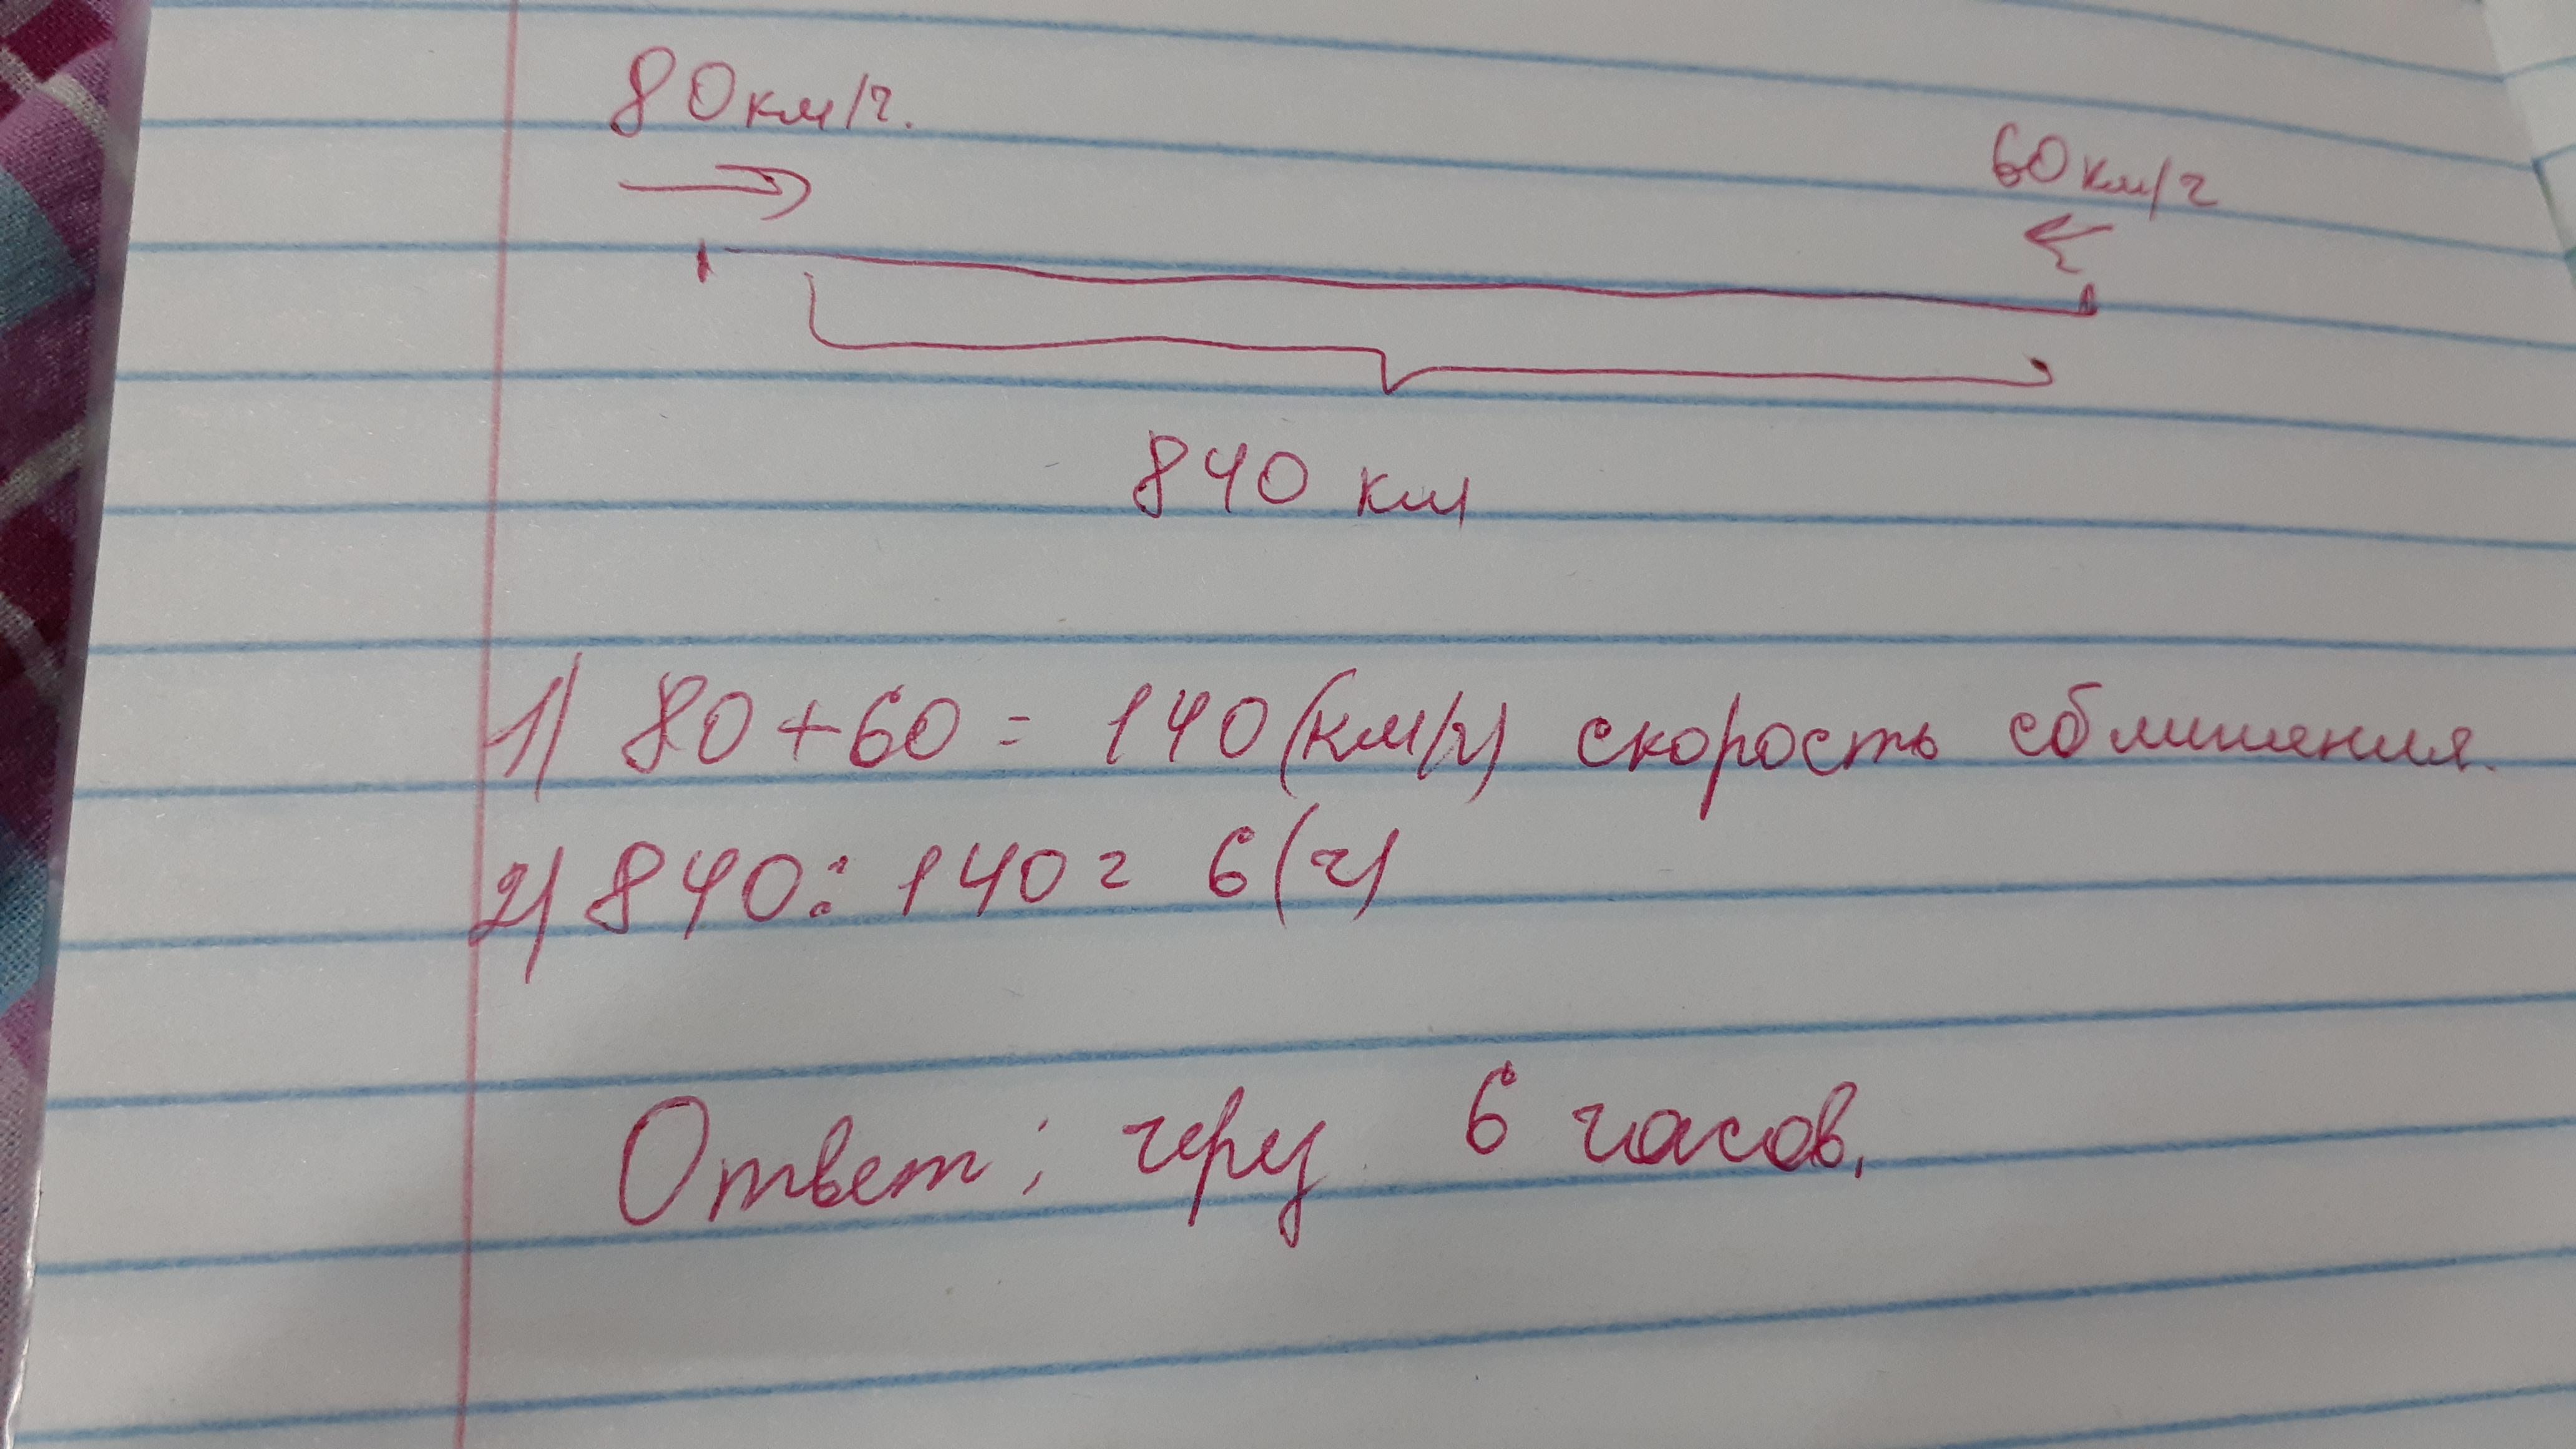 80км/ч.
60км/ч
840 км
1) 80+60 = 140(км/ч) скорость сближения.
2) 840 : 140 = 6(ч)
Ответ: через 6 часов.